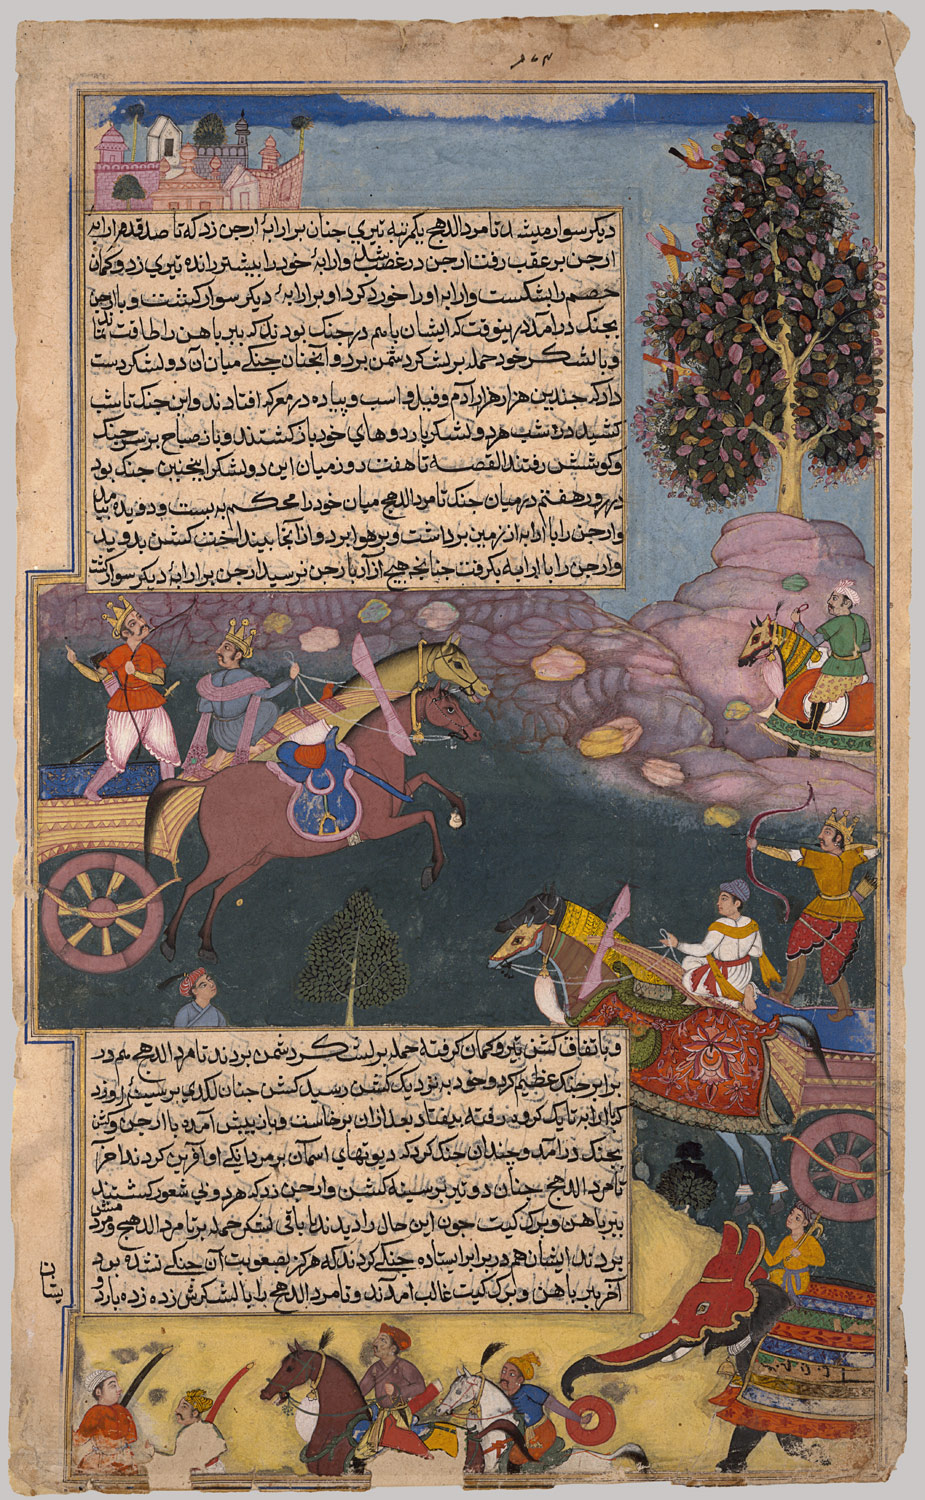 دیکر سوار میشد تامردالدهج یکمرتبه تیری چنان بر ارابهٔ ارجن زد که تا صد قدم ارابه
ارجن بر عقب رفت ارجن در غضب شد وارابهٔ خود را بیشتر رانده تیری زد وکمان
خصم را بشکست وارابه او را خورد کرد او بر ارابهٔ دیکر سوار کشت و با ارجن
بجنک درآمد درینوقت که ایشان باهم در جنک بودند که ببرباهن را طاقت نماند
و با لشکر خود حمله بر لشکر دشمن برد و آنچنان جنکی میان آن دو لشکر دست
داد که چندین هزار هزار آدم و فیل و اسب و پیاده در معرکه افتادند و این جنک تا شب
کشید در شب هر دو لشکر باردوهای خود باز کشتند و باز صباح بر سر جنک
و کوشش رفتند القصه تا هفت روز میان این دو لشکر اینچنین جنک بود
در روز هفتم در میان جنک تامردالدهج میان خود را محکم به بست و دویده بیامد
وارجن را با ارابه از زمین برداشت و بر هوا برد و از آنجا بینداخت کشن بدوید
وارجن را با ارابه بکرفت چنانچه هیچ آزار بارجن نرسید ارجن بر ارابهٔ دیکر سوار کشت
و باتفاق کشن تیر و کمان کرفته حمله بر لشکر دشمن بردند تامردالدهج هم در
برابر جنک عظیم کرد و خود به نزدیک کشن رسید کشن چنان لکدی بر سینه او زد
که از ارابه تا یک کروه رفته بیفتاد بعد ازان برخاست و باز پیش آمده با ارجن و کشن
بجنک درآمد و چندان جنک کرد که دیوتهای اسمان بر مردانکی او آفرین کردند آخر
تامردالدهج چنان دو تیر بر سینه کشن و ارجن زد که هر دو بی شعور کشتند
ببرباهن و برک کیت چون این حال را دیدند با باقی لشکر حمله بر تامردالدهج
بردند ایشان هم در برابر ایستاده جنکی کردند که هرکز بصعوبت آن جنکی نشده بود
آخر ببرباهن و برک کیت غالب آمدند و تامردالدهج را با لشکرش زده زده